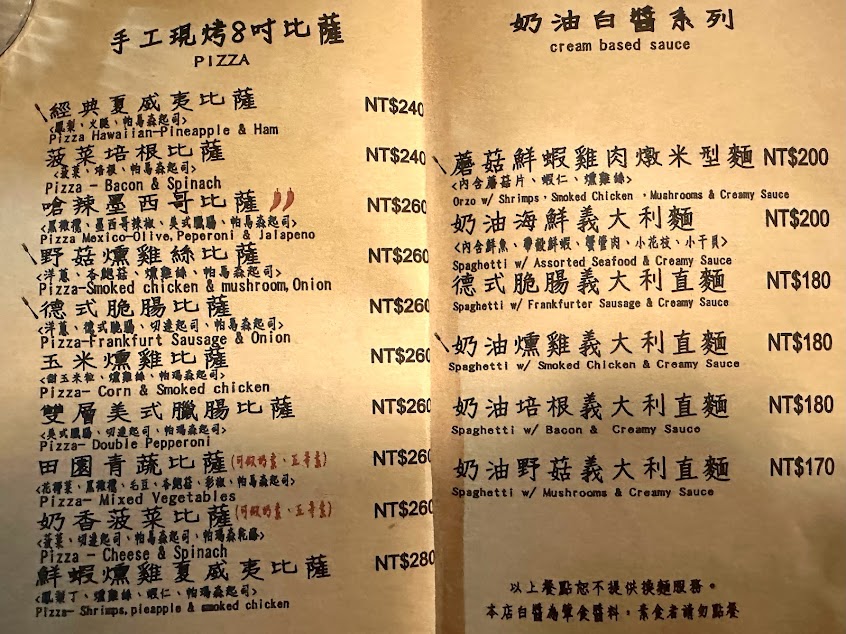 手工現烤8吋比薩
PIZZA
經典夏威夷比薩 NT$240
<鳳梨、火腿、帕馬森起司>
Pizza Hawaiian-Pineapple & Ham
菠菜培根比薩 NT$240
<菠菜、培根、帕馬森起司>
Pizza - Bacon & Spinach
嗆辣墨西哥比薩 NT$260
<黑橄欖、墨西哥辣椒、美式臘腸、帕馬森起司>
Pizza Mexico-Olive, Peperoni & Jalapeno
野菇燻雞絲比薩 NT$260
<洋蔥、杏鮑菇、燻雞絲、帕馬森起司>
Pizza-Smoked chicken & mushroom, Onion
德式脆腸比薩 NT$260
<洋蔥、德式脆腸、切達起司、帕馬森起司>
Pizza-Frankfurt Sausage & Onion
玉米燻雞比薩 NT$260
<甜玉米粒、燻雞絲、帕瑪森起司>
Pizza- Corn & Smoked chicken
雙層美式臘腸比薩 NT$260
<美式臘腸、切達起司、帕瑪森起司>
Pizza- Double Pepperoni
田園青蔬比薩(可做奶素、五辛素) NT$260
<花椰菜、黑橄欖、毛豆、杏鮑菇、彩椒、帕馬森起司>
Pizza- Mixed Vegetables
奶香菠菜比薩(可做奶素、五辛素) NT$260
<菠菜、切達起司、帕馬森起司、帕瑪森乾酪>
Pizza - Cheese & Spinach
鮮蝦燻雞夏威夷比薩 NT$280
<鳳梨丁、燻雞絲、蝦仁、帕瑪森起司>
Pizza- Shrimps, pieapple & smoked chicken
奶油白醬系列
cream based sauce
蘑菇鮮蝦雞肉燉米型麵 NT$200
<內含蘑菇片、蝦仁、燻雞絲>
Orzo w/ Shrimps, Smoked Chicken , Mushrooms & Creamy Sauce
奶油海鮮義大利麵 NT$200
<內含鮮魚、帶殼鮮蝦、蟹管肉、小花枝、小干貝>
Spaghetti w/ Assorted Seafood & Creamy Sauce
德式脆腸義大利直麵 NT$180
Spaghetti w/ Frankfurter Sausage & Creamy Sauce
奶油燻雞義大利直麵 NT$180
Spaghetti w/ Smoked Chicken & Creamy Sauce
奶油培根義大利直麵 NT$180
Spaghetti w/ Bacon & Creamy Sauce
奶油野菇義大利直麵 NT$170
Spaghetti w/ Mushrooms & Creamy Sauce
以上餐點恕不提供換麵服務。
本店白醬為葷食醬料,素食者請勿點餐